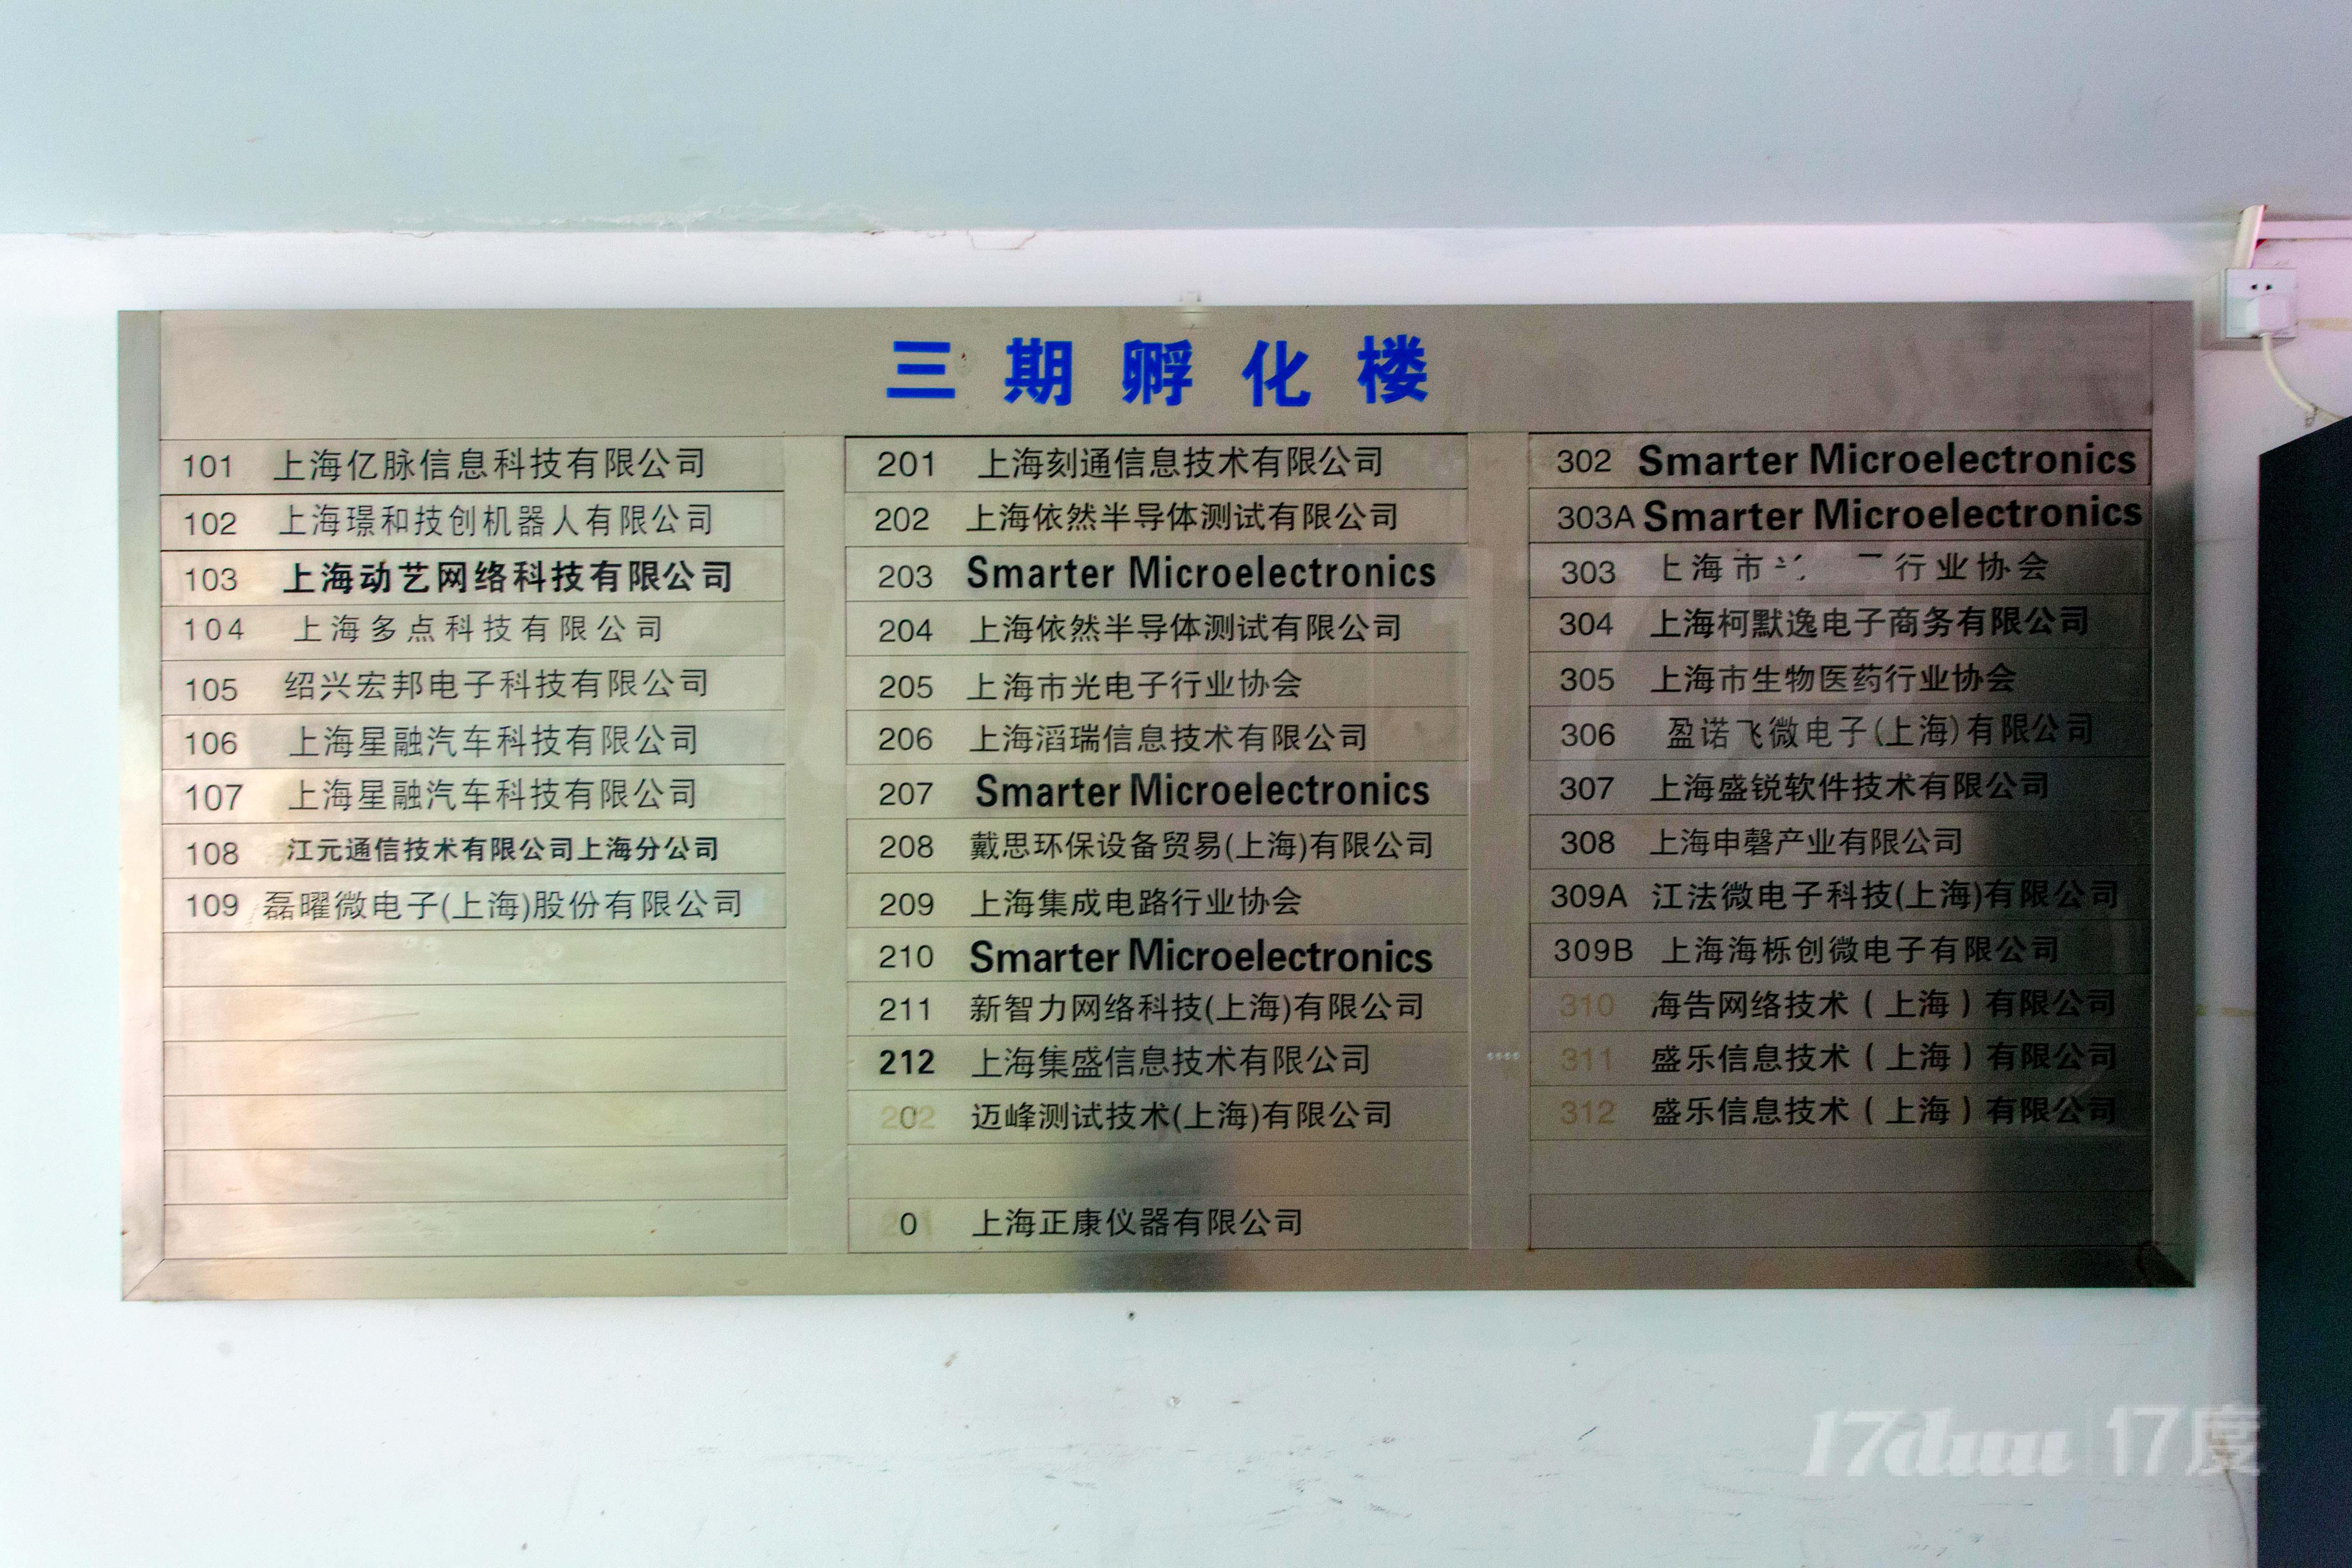 三期孵化楼
101 上海亿脉信息科技有限公司
102 上海璟和技创机器人有限公司
103 上海动艺网络科技有限公司
104 上海多点科技有限公司
105 绍兴宏邦电子科技有限公司
106 上海星融汽车科技有限公司
107 上海星融汽车科技有限公司
108 江元通信技术有限公司上海分公司
109 磊曜微电子(上海)股份有限公司
201 上海刻通信息技术有限公司
202 上海依然半导体测试有限公司
203 Smarter Microelectronics
204 上海依然半导体测试有限公司
205 上海市光电子行业协会
206 上海滔瑞信息技术有限公司
207 Smarter Microelectronics
208 戴思环保设备贸易(上海)有限公司
209 上海集成电路行业协会
210 Smarter Microelectronics
211 新智力网络科技(上海)有限公司
212 上海集盛信息技术有限公司
0 迈峰测试技术(上海)有限公司
0 上海正康仪器有限公司
302 Smarter Microelectronics
303A Smarter Microelectronics
303 上海市 行业协会
304 上海柯默逸电子商务有限公司
305 上海市生物医药行业协会
306 盈诺飞微电子(上海)有限公司
307 上海盛锐软件技术有限公司
308 上海申磬产业有限公司
309A 江法微电子科技(上海)有限公司
309B 上海海栎创微电子有限公司
310 海告网络技术(上海)有限公司
311 盛乐信息技术(上海)有限公司
312 盛乐信息技术(上海)有限公司
17duu 17度